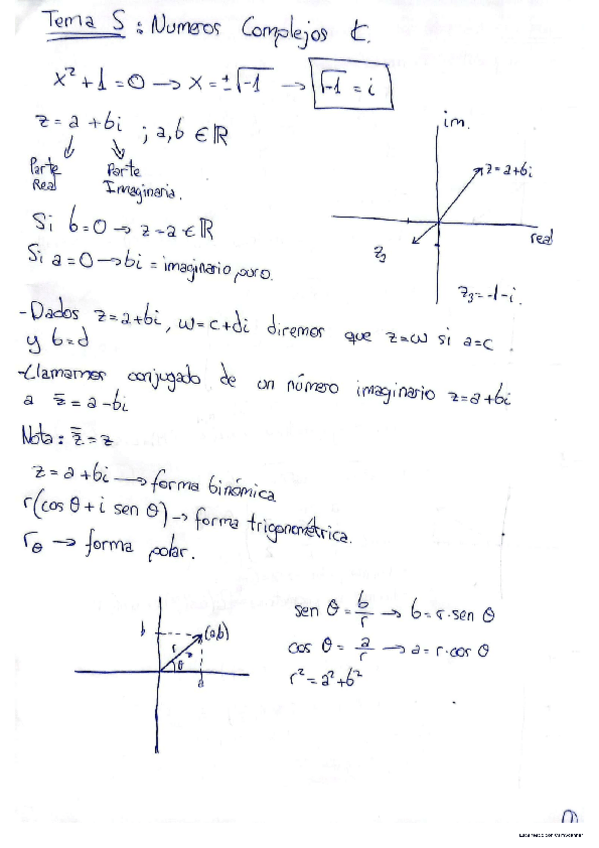 Tema 5: Numeros Complejos ₵.
x²+1=0 → x=±√-1 → √-1 = i
z=a+bi ; a,b ∈ ℝ
Parte Real
Parte Imaginaria.
Si b=0 → z-a ∈ ℝ
Si a=0 → bi = imaginario puro.
im.
z=a+bi
real
z₃
z₃=-1-i.
-Dados z=a+bi, w=c+di diremos que z=w si a=c
y b=d
-Llamamos conjugado de un número imaginario z=a+bi
a z̄=a-bi
Nota: z̿=z
z=a+bi → forma binómica
r(cos θ+i sen θ) → forma trigonométrica.
r_θ → forma polar.
b
(a,b)
r
θ
a
sen θ = b/r → b=r·sen θ
cos θ = a/r → a=r·cos θ
r²=a²+b²